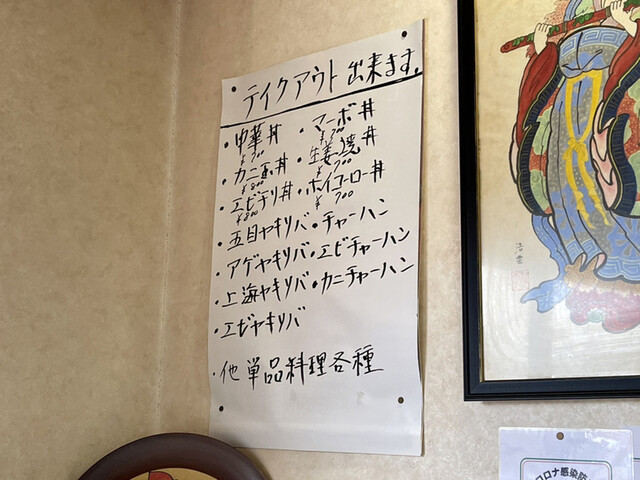 テイクアウト出来ます。
・中華丼
¥700
・カニ玉丼
¥800
・エビチリ丼
¥800
・五目ヤキソバ
・アゲヤキソバ
・上海ヤキソバ
・エビヤキソバ
・マーボ丼
¥700
・生姜焼丼
¥700
・ホイコーロー丼
¥700
・チャーハン
・エビチャーハン
・カニチャーハン
・他単品料理各種
コロナ感染防